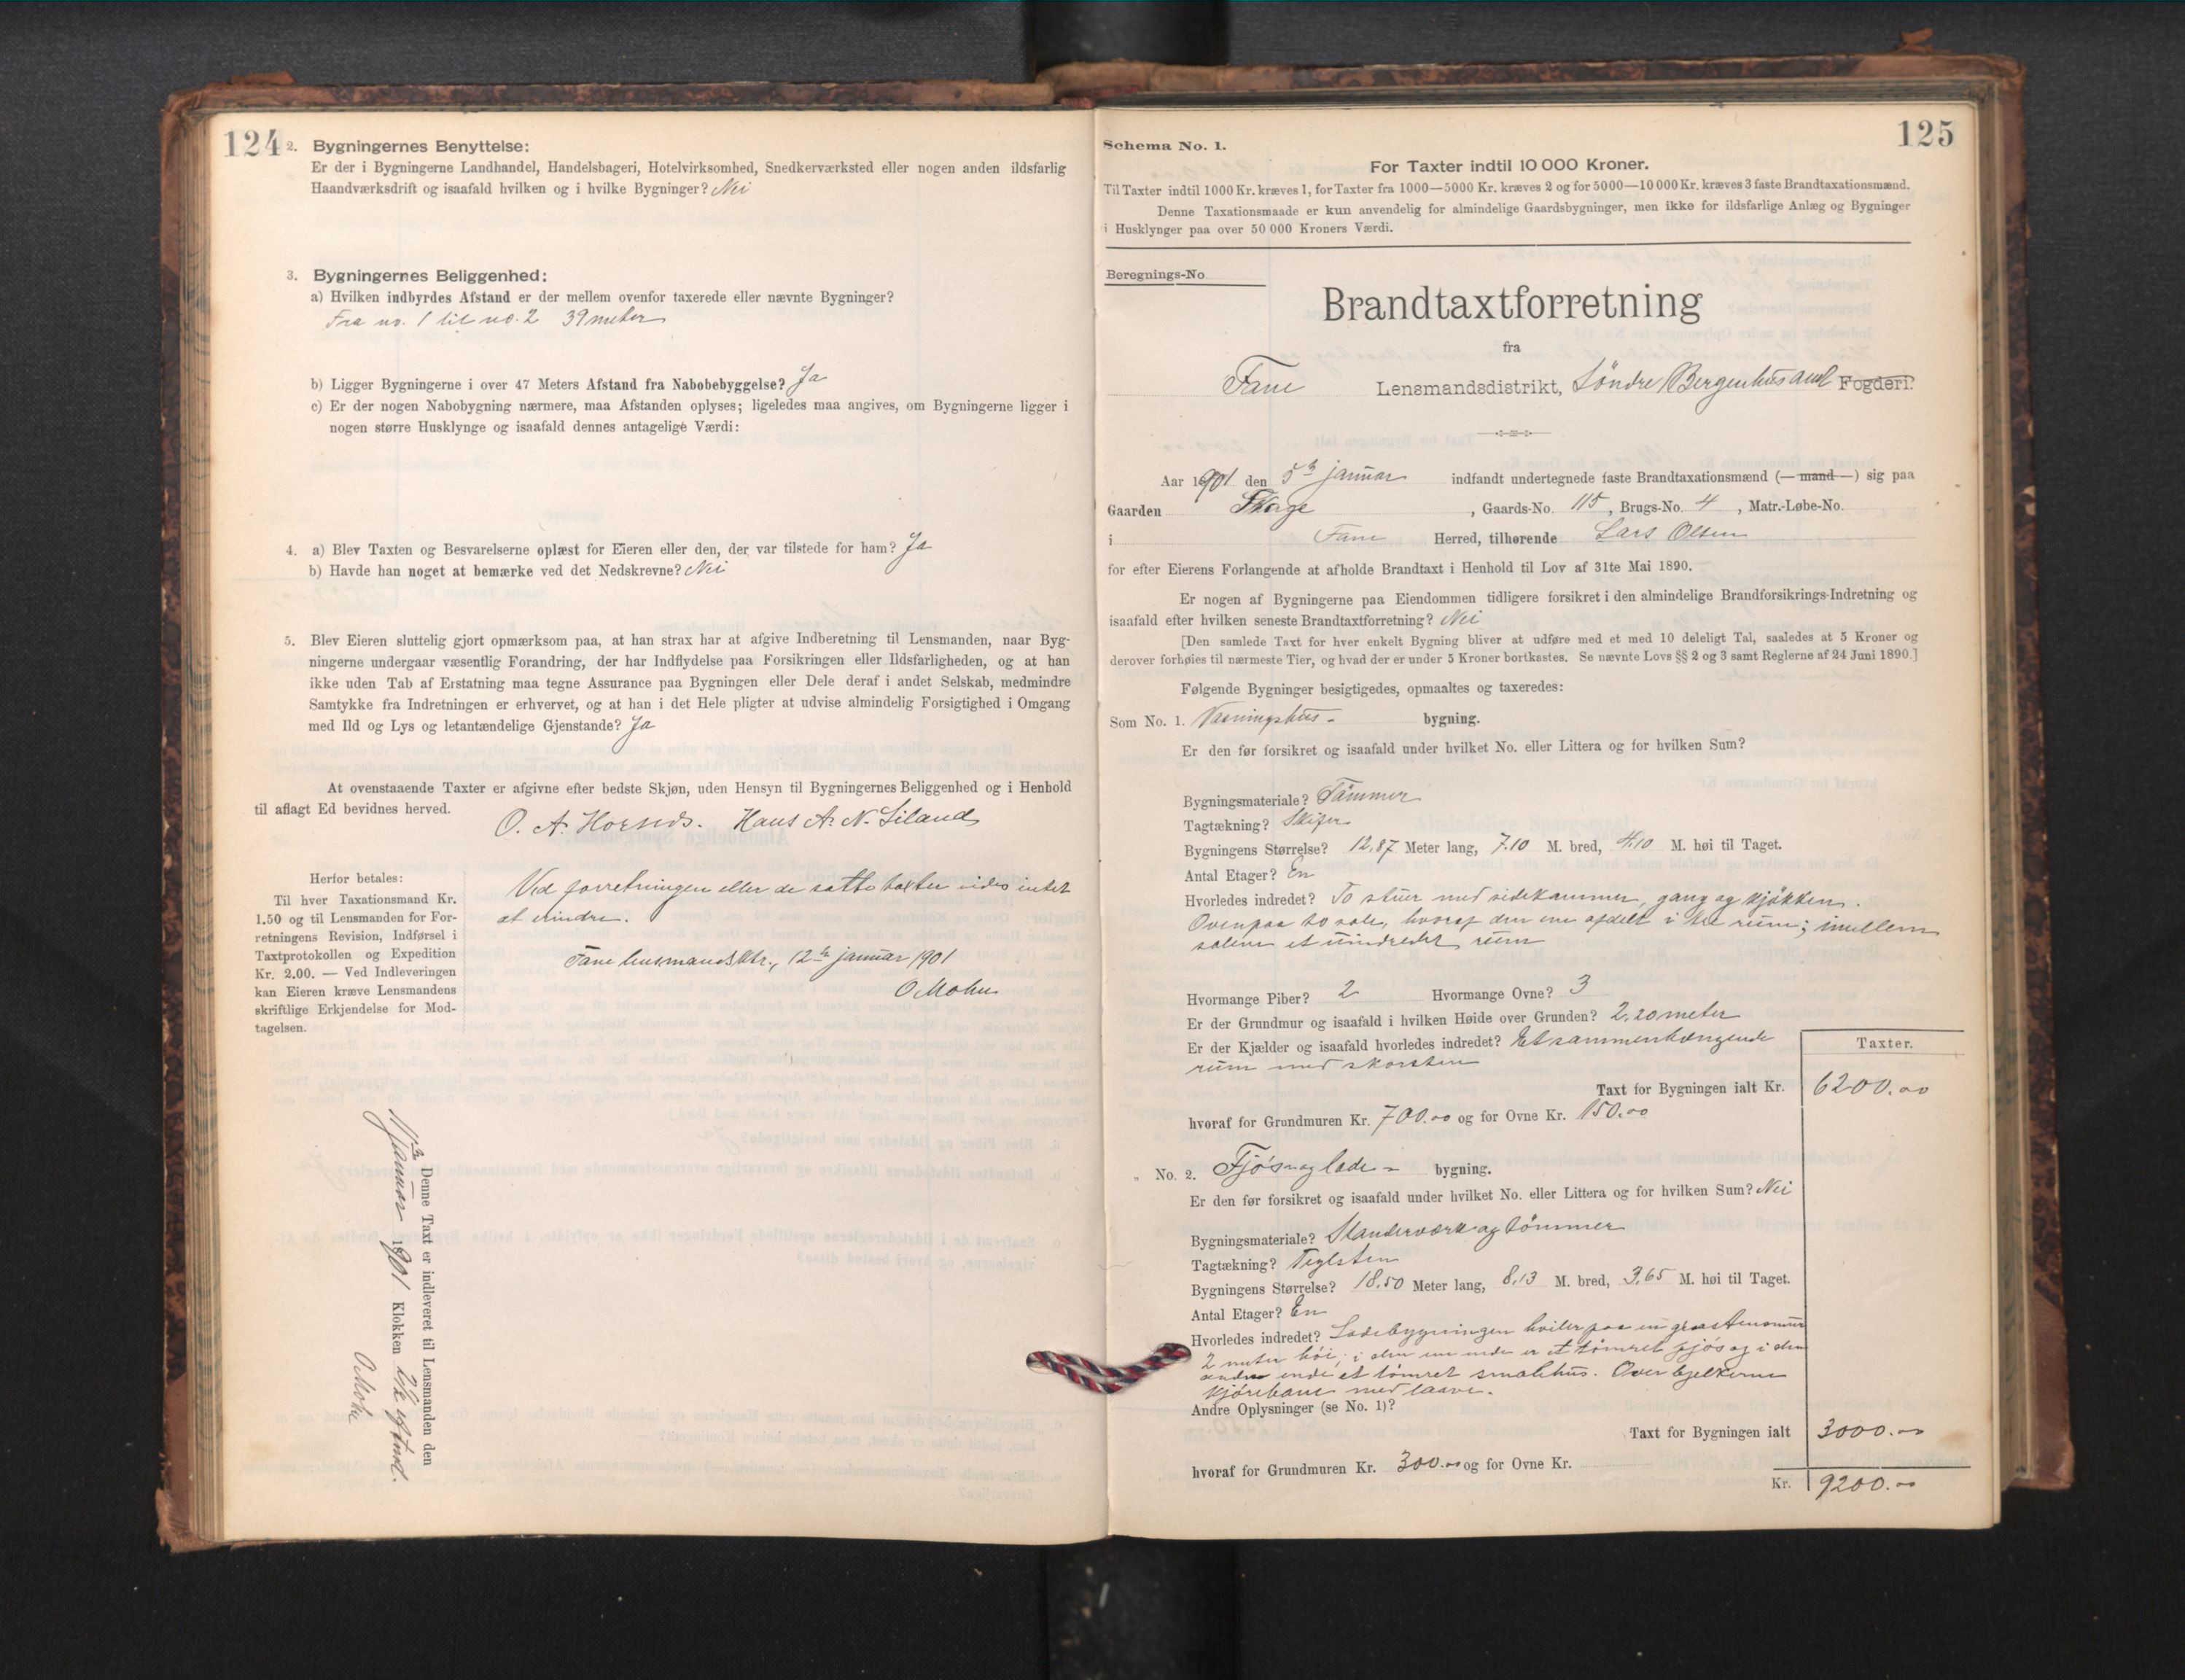 124
2. Bygningernes Benyttelse:
Er der i Bygningerne Landhandel, Handelsbageri, Hotelvirksomhed, Snedkerværksted eller nogen anden ildsfarlig
Haandværksdrift og isaafald hvilken og i hvilke Bygninger? Nei
3. Bygningernes Beliggenhed:
a) Hvilken indbyrdes Afstand er der mellem ovenfor taxerede eller nævnte Bygninger?
Fra no. 1 til no. 2 39 meter
b) Ligger Bygningerne i over 47 Meters Afstand fra Nabobebyggelse? Ja
c) Er der nogen Nabobygning nærmere, maa Afstanden oplyses; ligeledes maa angives, om Bygningerne ligger i
nogen større Husklynge og isaafald dennes antagelige Værdi:
4. a) Blev Taxten og Besvarelserne oplæst for Eieren eller den, der var tilstede for ham? Ja
b) Havde han noget at bemærke ved det Nedskrevne? Nei
5. Blev Eieren sluttelig gjort opmærksom paa, at han strax har at afgive Indberetning til Lensmanden, naar Byg-
ningerne undergaar væsentlig Forandring, der har Indflydelse paa Forsikringen eller Ildsfarligheden, og at han
ikke uden Tab af Erstatning maa tegne Assurance paa Bygningen eller Dele deraf i andet Selskab, medmindre
Samtykke fra Indretningen er erhvervet, og at han i det Hele pligter at udvise almindelig Forsigtighed i Omgang
med Ild og Lys og letantændelige Gjenstande? Ja
At ovenstaaende Taxter er afgivne efter bedste Skjøn, uden Hensyn til Bygningernes Beliggenhed og i Henhold
til aflagt Ed bevidnes herved.
O. A. Hans A. N. Liland
Herfor betales:
Til hver Taxationsmand Kr.
1.50 og til Lensmanden for For-
retningens Revision, Indførsel i
Taxtprotokollen og Expedition
Kr. 2.00. — Ved Indleveringen
kan Eieren kræve Lensmandens
skriftlige Erkjendelse for Mod-
tagelsen.
Ved forretningen eller de satte taxter vides intet
at erindre.
Fane lensmandsktr., 12te januar 1901
O Mohn
Denne Taxt er indleveret til Lensmanden den
11te januar 1901 Klokken 2 1/2 eftmd.
O Mohn
125
Schema No. 1.
For Taxter indtil 10 000 Kroner.
Til Taxter indtil 1000 Kr. kræves 1, for Taxter fra 1000—5000 Kr. kræves 2 og for 5000—10 000 Kr. kræves 3 faste Brandtaxationsmænd.
Denne Taxationsmaade er kun anvendelig for almindelige Gaardsbygninger, men ikke for ildsfarlige Anlæg og Bygninger
i Husklynger paa over 50 000 Kroners Værdi.
Beregnings-No
Brandtaxtforretning
fra
Fane Lensmandsdistrikt, Söndre Bergenhus amt Fogderi.
Aar 1901 den 5te januar indfandt undertegnede faste Brandtaxationsmænd (—mand—) sig paa
Gaarden Skage, Gaards-No. 115, Brugs-No. 4, Matr.-Løbe-No.
i Fane Herred, tilhørende Lars Olsen
for efter Eierens Forlangende at afholde Brandtaxt i Henhold til Lov af 31te Mai 1890.
Er nogen af Bygningerne paa Eiendommen tidligere forsikret i den almindelige Brandforsikrings-Indretning og
isaafald efter hvilken seneste Brandtaxtforretning? Nei
[Den samlede Taxt for hver enkelt Bygning bliver at udføre med et med 10 deleligt Tal, saaledes at 5 Kroner og
derover forhøies til nærmeste Tier, og hvad der er under 5 Kroner bortkastes. Se nævnte Lovs §§ 2 og 3 samt Reglerne af 24 Juni 1890.]
Følgende Bygninger besigtigedes, opmaaltes og taxeredes:
Som No. 1. Vaaningshus- bygning.
Er den før forsikret og isaafald under hvilket No. eller Littera og for hvilken Sum?
Bygningsmateriale? Tömmer
Tagtækning? Skifer
Bygningens Størrelse? 12,87 Meter lang, 7.10 M. bred, 4.10 M. høi til Taget.
Antal Etager? En
Hvorledes indredet? To stuer med sidekammer, gang og kjökken.
Ovenpaa to sale, hvoraf den ene afdelt i tre rum; imellem
salene et uindredet rum
Hvormange Piber? 2 Hvormange Ovne? 3
Er der Grundmur og isaafald i hvilken Høide over Grunden? 2,20 meter
Er der Kjælder og isaafald hvorledes indredet? Et sammenhængende
rum med skorsten
Taxter.
Taxt for Bygningen ialt Kr. 6200.00
hvoraf for Grundmuren Kr. 700.00 og for Ovne Kr. 150.00
„ No. 2. Fjös- og lade- bygning.
Er den før forsikret og isaafald under hvilket No. eller Littera og for hvilken Sum? Nei
Bygningsmateriale? Standerværk og tömmer
Tagtækning? Teglsten
Bygningens Størrelse? 18,50 Meter lang, 8,13 M. bred, 3,65 M. høi til Taget.
Antal Etager? En
Hvorledes indredet? Ladebygningen hviler paa en graastensmur
2 meter höi; i den ene ende er et tömret fjös og i den
anden ende et tömret smalehus. Over bjelkerne
kjörebane med laave.
Andre Oplysninger (se No. 1)?
Taxt for Bygningen ialt 3000.00
hvoraf for Grundmuren Kr. 300.00 og for Ovne Kr.
Kr. 9200.00